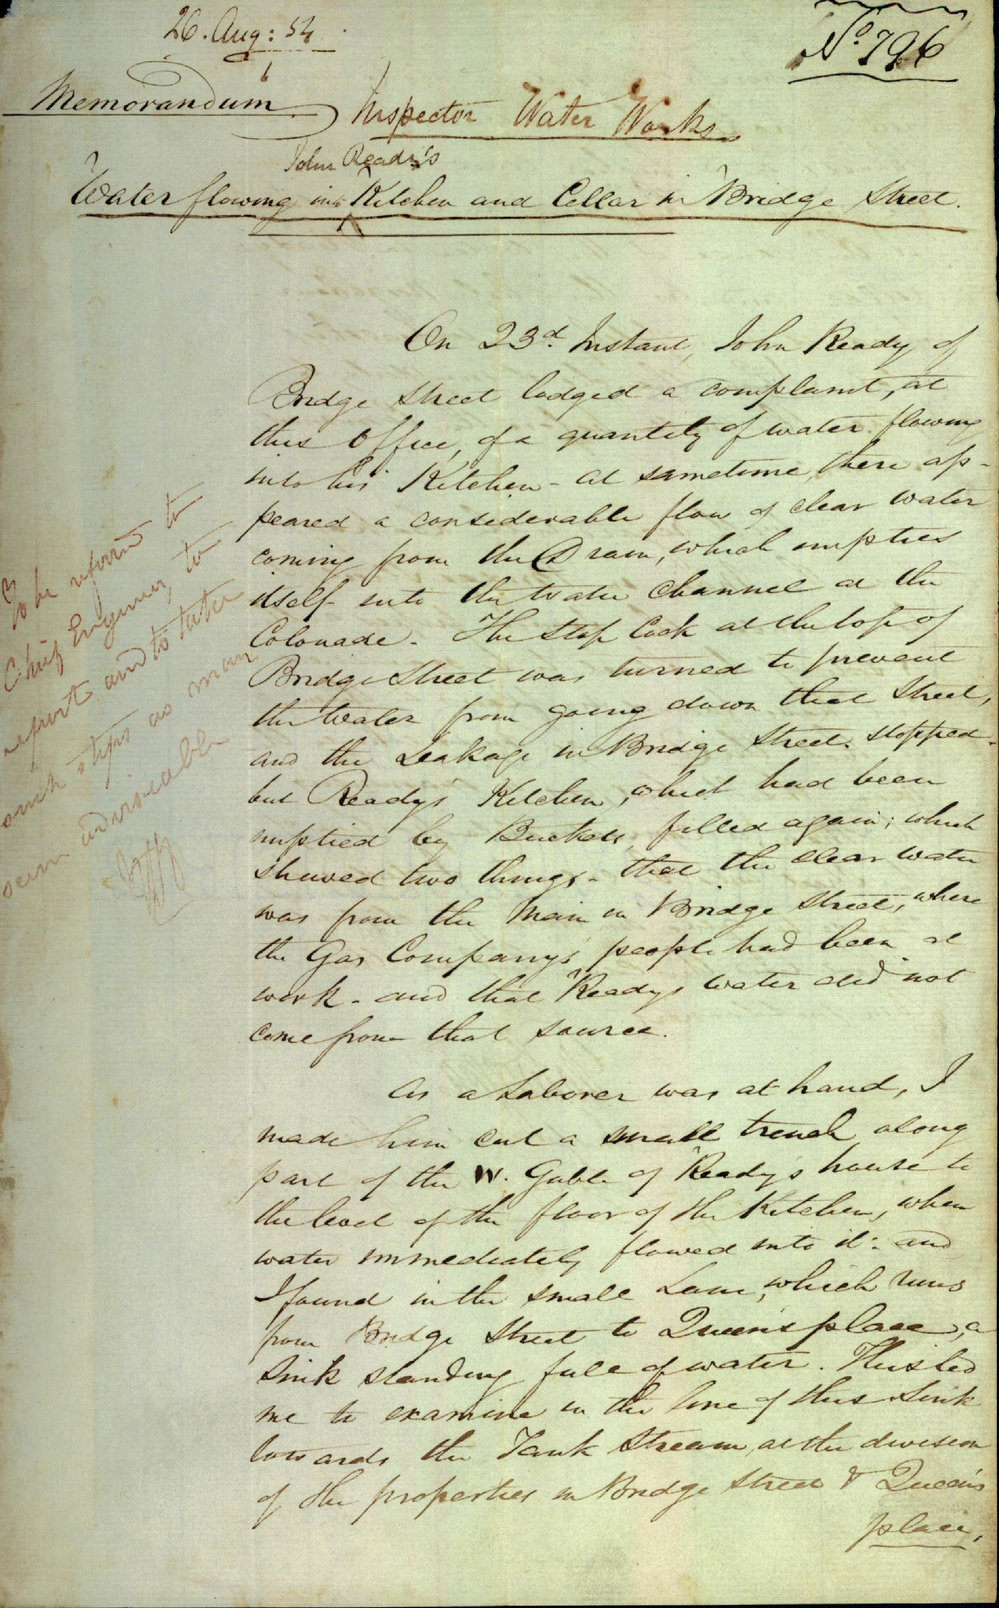 26. Aug: 54.
No. 796
Memorandum
Inspector Water Works
John Ready's
Water flowing into Kitchen and Cellar in Bridge Street.
On 23d. Instant, John Ready of
Bridge Street lodged a complaint, at
this Office, of a quantity of water flowing
into his Kitchen - at sametime, there ap-
peared a considerable flow of clear water
coming from the Drain, which empties
itself into the water Channel at the
Colonade. The Stop Cock at the top of
Bridge Street was turned to prevent
the water from going down that Street,
and the Leakage in Bridge Street stopped -
but Ready's Kitchen, which had been
emptied by Buckets, filled again; which
shewed two things - that the clear water
was from the main in Bridge Street, where
the Gas Company's people had been at
work - and that Ready's water did not
come from that source.
As a Laborer was at hand, I
made him cut a small trench along
part of the W. Gable of Ready's house to
the level of the floor of the Kitchen, when
water immediately flowed into it: and
I found in the small Lane, which runs
from Bridge Street to Queen's place, a
Sink standing full of water. This led
me to examine in the line of this Sink
towards the Tank Stream, at the division
of the properties in Bridge Street & Queen's
place,
To be referred to
Chief Engineer, to
report and to take
such steps as may
seem advisable